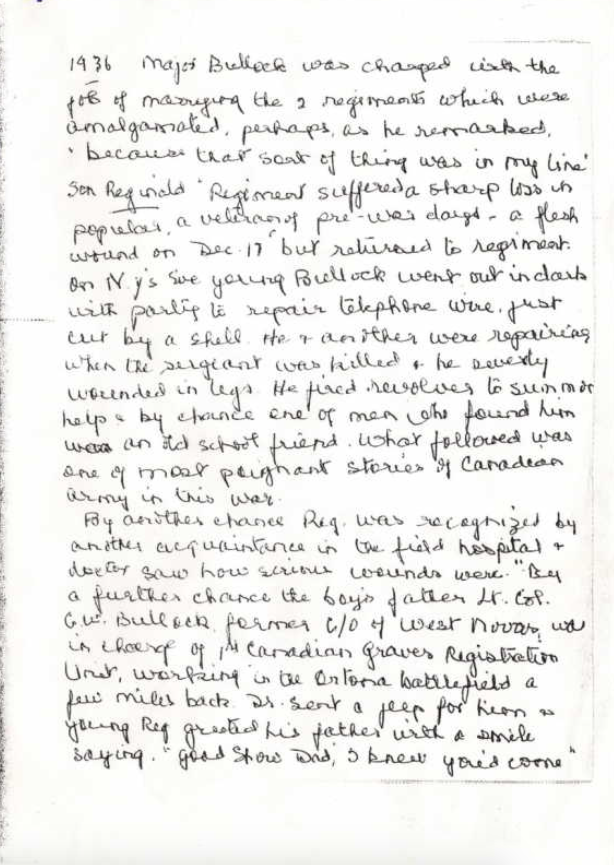 1936 Major Bullock was charged with the
job of marrying the 2 regiments which were
amalgamated, perhaps, as he remarked,
"because that sort of thing was in my line"
Son Reginald "Regiment suffered a sharp loss in
popular, a veteran of pre-war days - a flesh
wound on Dec. 17" but returned to regiment.
On N.Y's Eve young Bullock went out in dark
with party to repair telephone wire, just
cut by a shell. He + another were repairing
when the sergeant was killed + he severely
wounded in legs. He fired revolver to summon
help & by chance one of men who found him
was an old school friend. What followed was
one of most poignant stories of Canadian
army in this war.
By another chance Reg. was recognized by
another acquaintance in the field hospital +
doctor saw how serious wounds were. "By
a further chance the boy's father Lt. Col.
G.W. Bullock former C/O of West Novas, was
in charge of 1st Canadian Graves Registration
Unit, working in the Ortona battlefield a
few miles back. Dr. sent a jeep for him &
young Reg greeted his father with a smile
saying. "Good Show Dad, I knew you'd come"